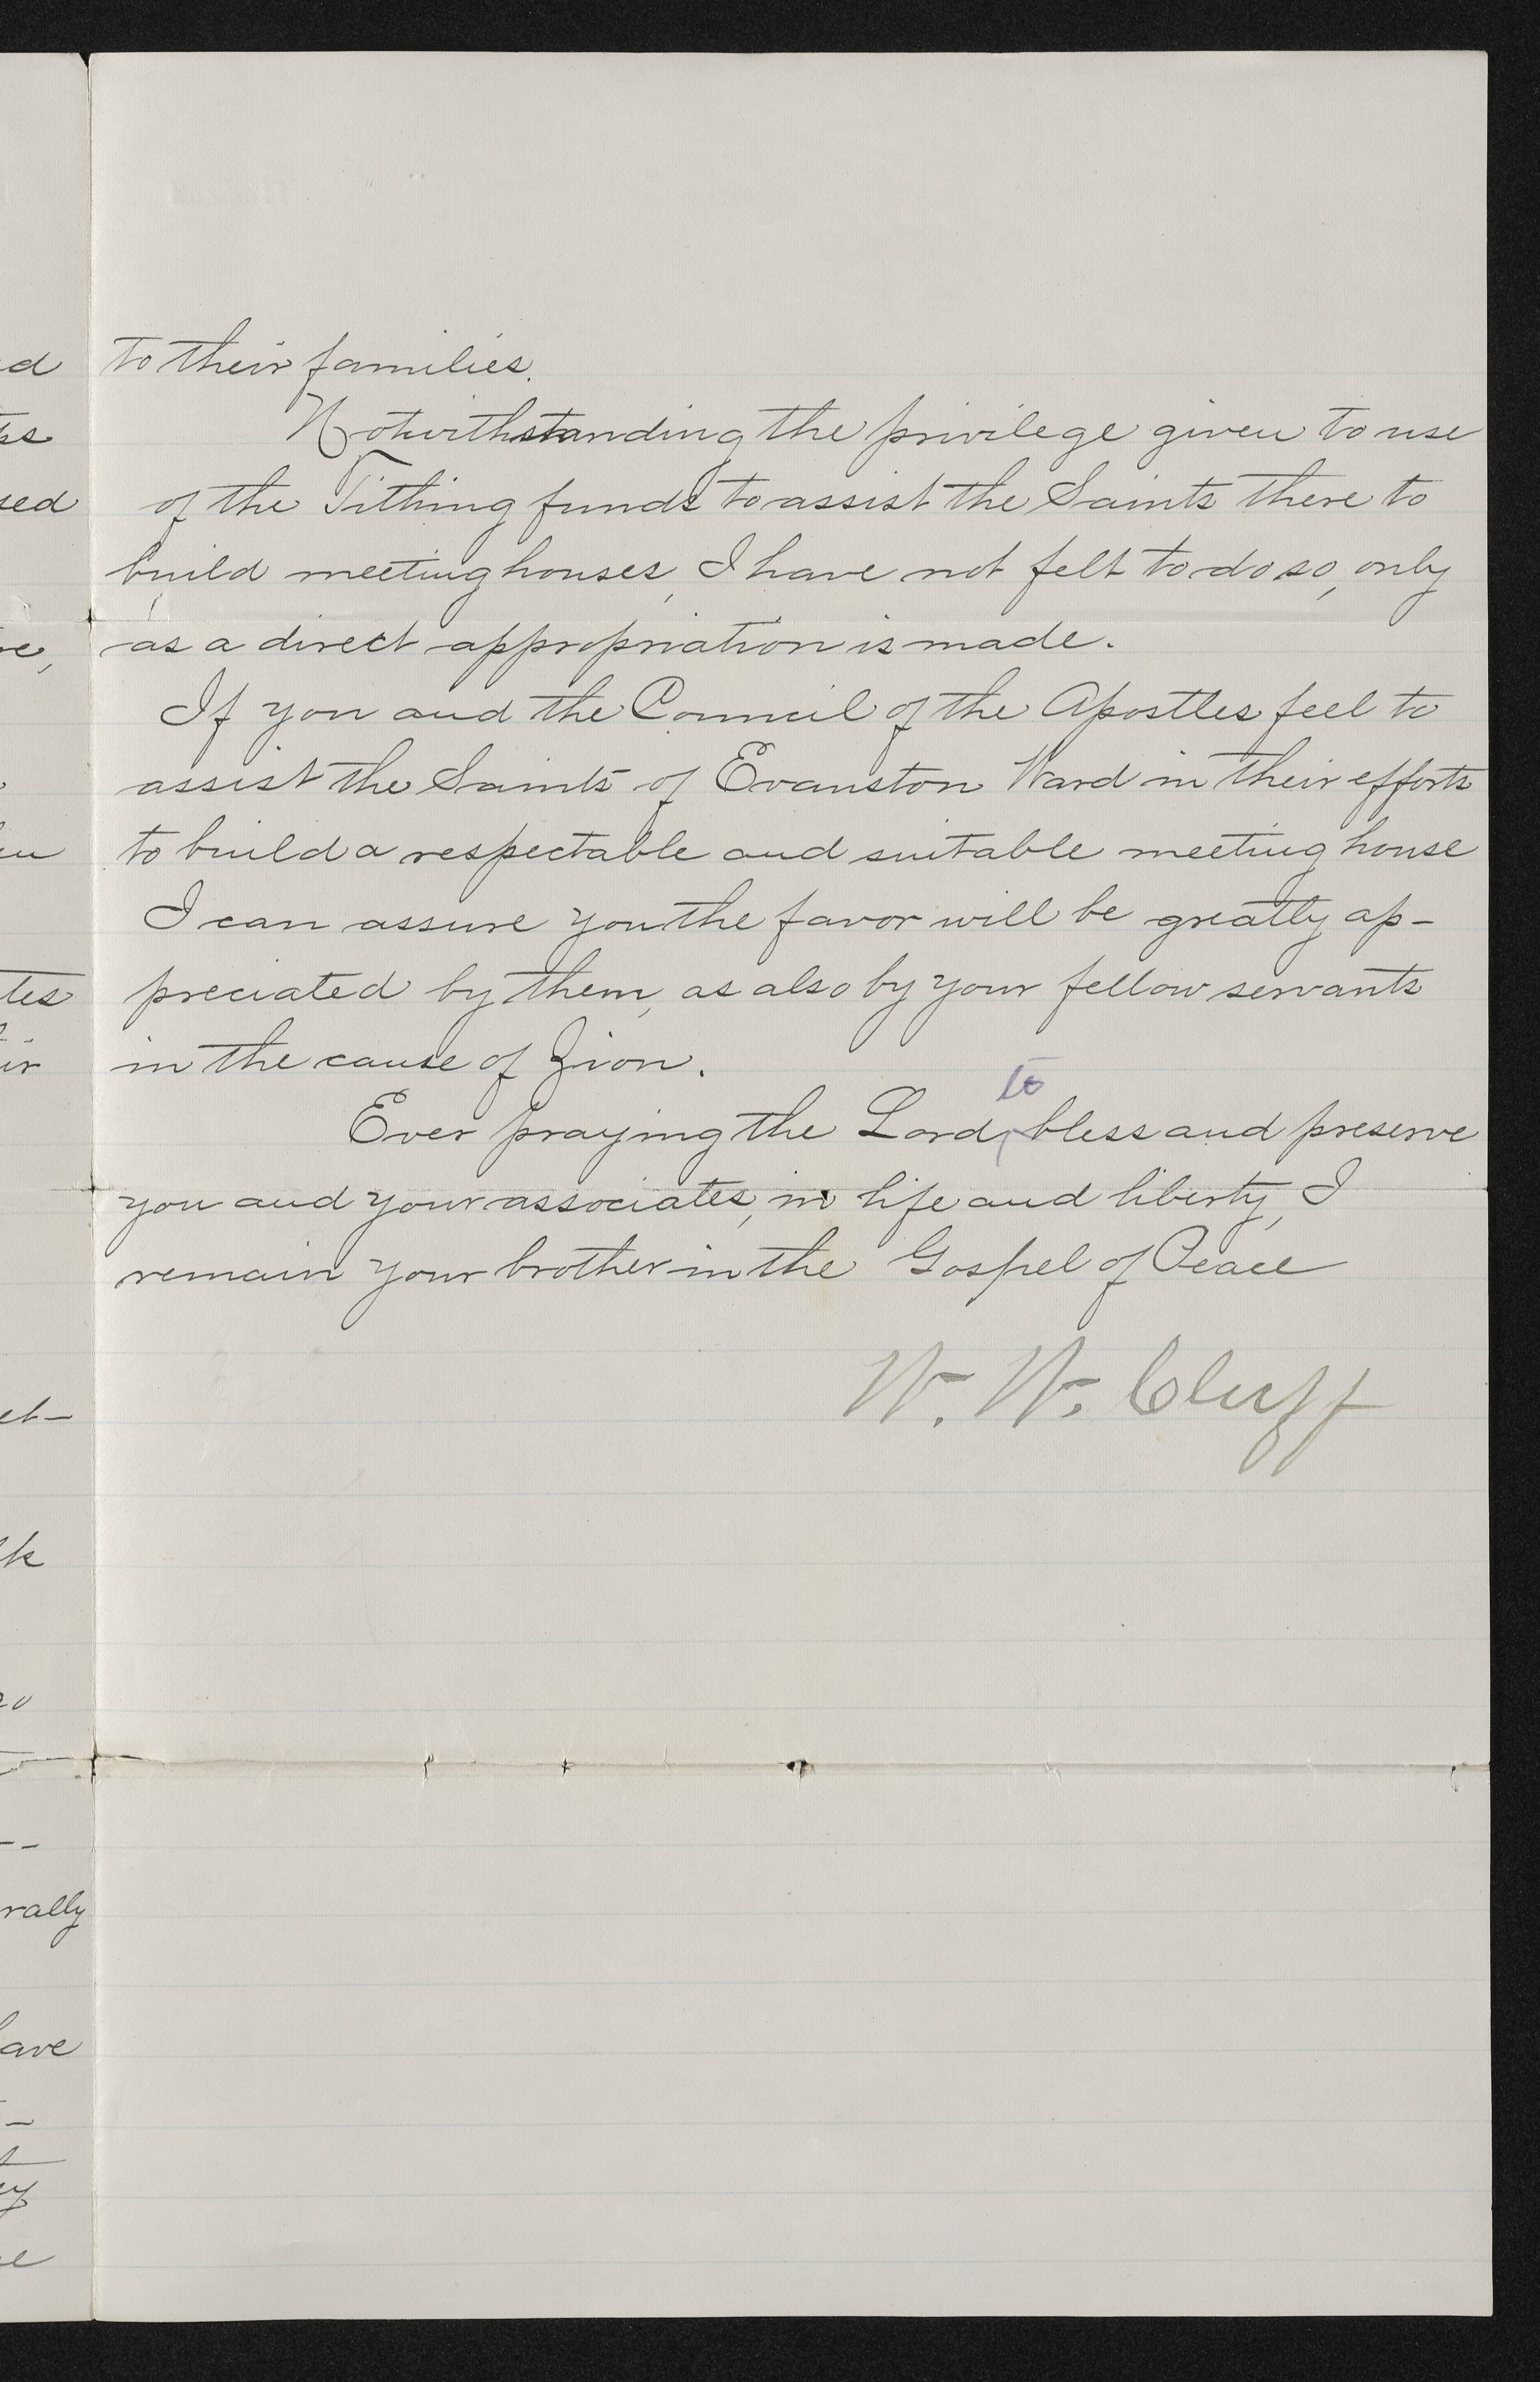 to their families.
Notwithstanding the privilege given to use
of the Tithing funds to assist the Saints there to
build meetinghouses, I have not felt to do so, only
as a direct appropriation is made.
If you and the Council of the Apostles feel to
assist the Saints of Evanston Ward in their efforts
to build a respectable and suitable meeting house
I can assure you the favor will be greatly ap-
preciated by them, as also by your fellow servants
in the cause of Zion.
to
Ever praying the Lord bless and preserve
you and your associates, in life and liberty, I
remain your brother in the Gospel of Peace
W. W. Cluff